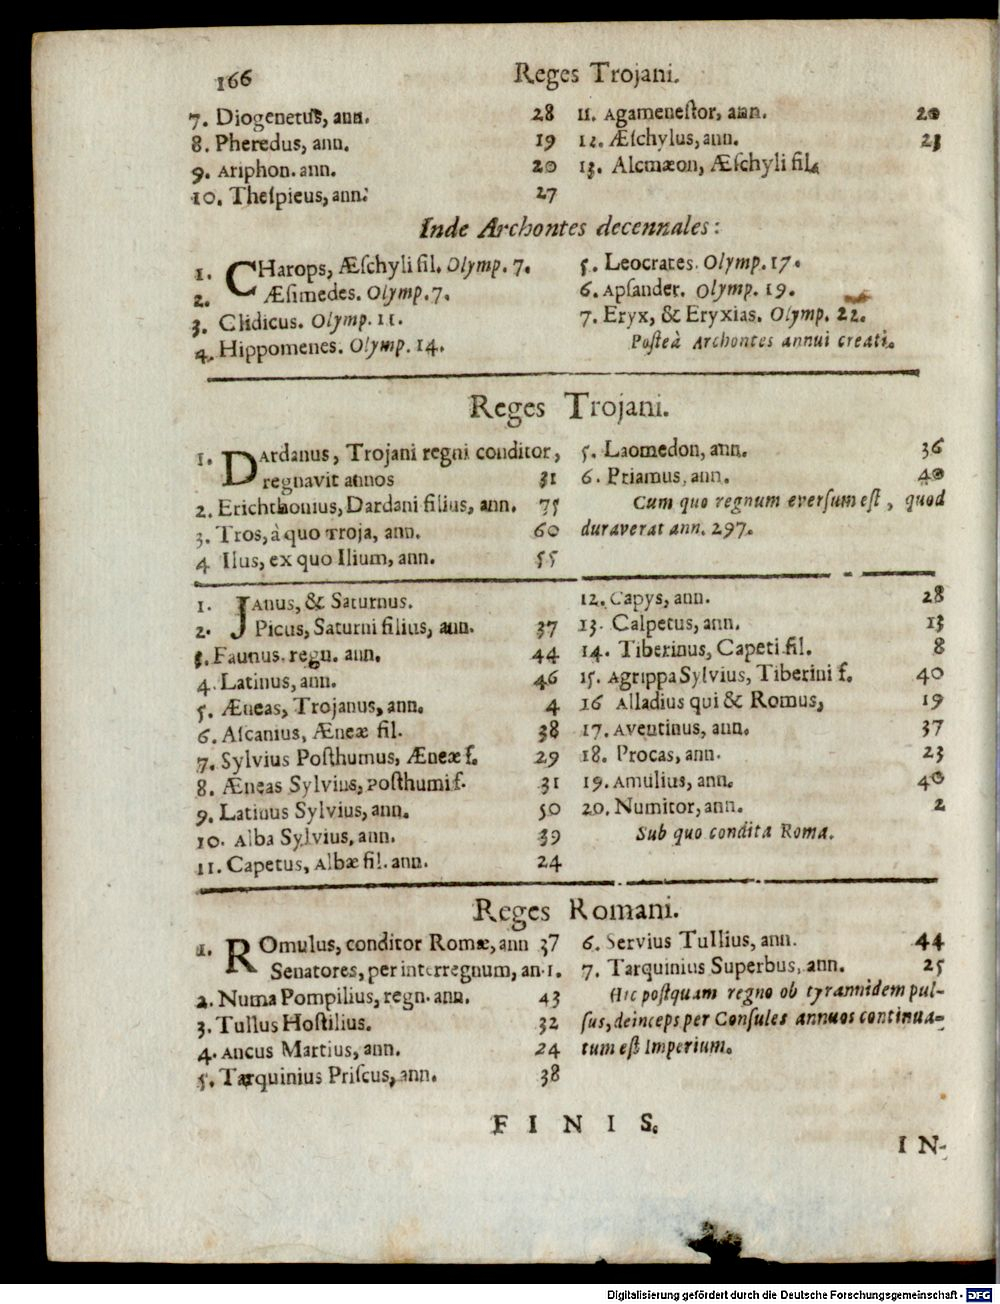 166
Reges Trojani.
7. Diogenetus, ann. 28
8. Pheredus, ann. 19
9. Ariphon. ann. 20
10. Thespieus, ann. 27
11. Agamenestor, ann. 20
12. Æschylus, ann. 23
13. Alcmæon, Æschyli fil.
Inde Archontes decennales:
1. CHarops, Æſchyli fil. Olymp. 7.
2. Æsimedes. Olymp. 7.
3. Clidicus. Olymp. 11.
4. Hippomenes. Olymp. 14.
5. Leocrates. Olymp. 17.
6. Apsander. Olymp. 19.
7. Eryx, & Eryxias. Olymp. 22.
Posteà Archontes annui creati.
Reges Trojani.
1. DArdanus, Trojani regni conditor,
regnavit annos 31
2. Erichthonius, Dardani filius, ann. 75
3. Tros, à quo Troja, ann. 60
4 Ilus, ex quo Ilium, ann. 55
5. Laomedon, ann. 36
6. Priamus, ann. 40
Cum quo regnum eversum est, quod
duraverat ann. 297.
1. JAnus, & Saturnus.
2. Picus, Saturni filius, ann. 37
3. Faunus. regn. ann. 44
4. Latinus, ann. 46
5. Æneas, Trojanus, ann. 4
6. Ascanius, Æneæ fil. 38
7. Sylvius Posthumus, Æneæ f. 29
8. Æneas Sylvius, Posthumi f. 31
9. Latinus Sylvius, ann. 50
10. Alba Sylvius, ann. 39
11. Capetus, Albæ fil. ann. 24
12. Capys, ann. 28
13. Calpetus, ann. 13
14. Tiberinus, Capeti fil. 8
15. Agrippa Sylvius, Tiberini f. 40
16 Alladius qui & Romus, 19
17. Aventinus, ann. 37
18. Procas, ann. 23
19. Amulius, ann. 40
20. Numitor, ann. 2
Sub quo condita Roma.
Reges Romani.
1. ROmulus, conditor Romæ, ann 37
Senatores, per interregnum, an. 1.
2. Numa Pompilius, regn. ann. 43
3. Tullus Hostilius. 32
4. Ancus Martius, ann. 24
5. Tarquinius Priscus, ann. 38
6. Servius Tullius, ann. 44
7. Tarquinius Superbus, ann. 25
Hic postquam regno ob tyrannidem pul-
sus, deinceps per Consules annuos continua-
tum est Imperium.
FINIS.
IN-
Digitalisierung gefördert durch die Deutsche Forschungsgemeinschaft - DFG